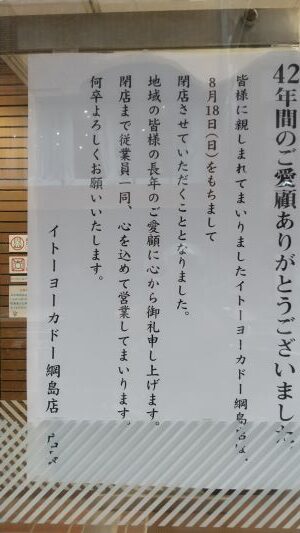 42年間のご愛顧ありがとうございました
皆様に親しまれてまいりましたイトーヨーカドー綱島店は、
8月18日（日）をもちまして
閉店させていただくこととなりました。
地域の皆様の長年のご愛顧に心から御礼申し上げます。
閉店まで従業員一同、心を込めて営業してまいります。
何卒よろしくお願いいたします。
イトーヨーカドー綱島店